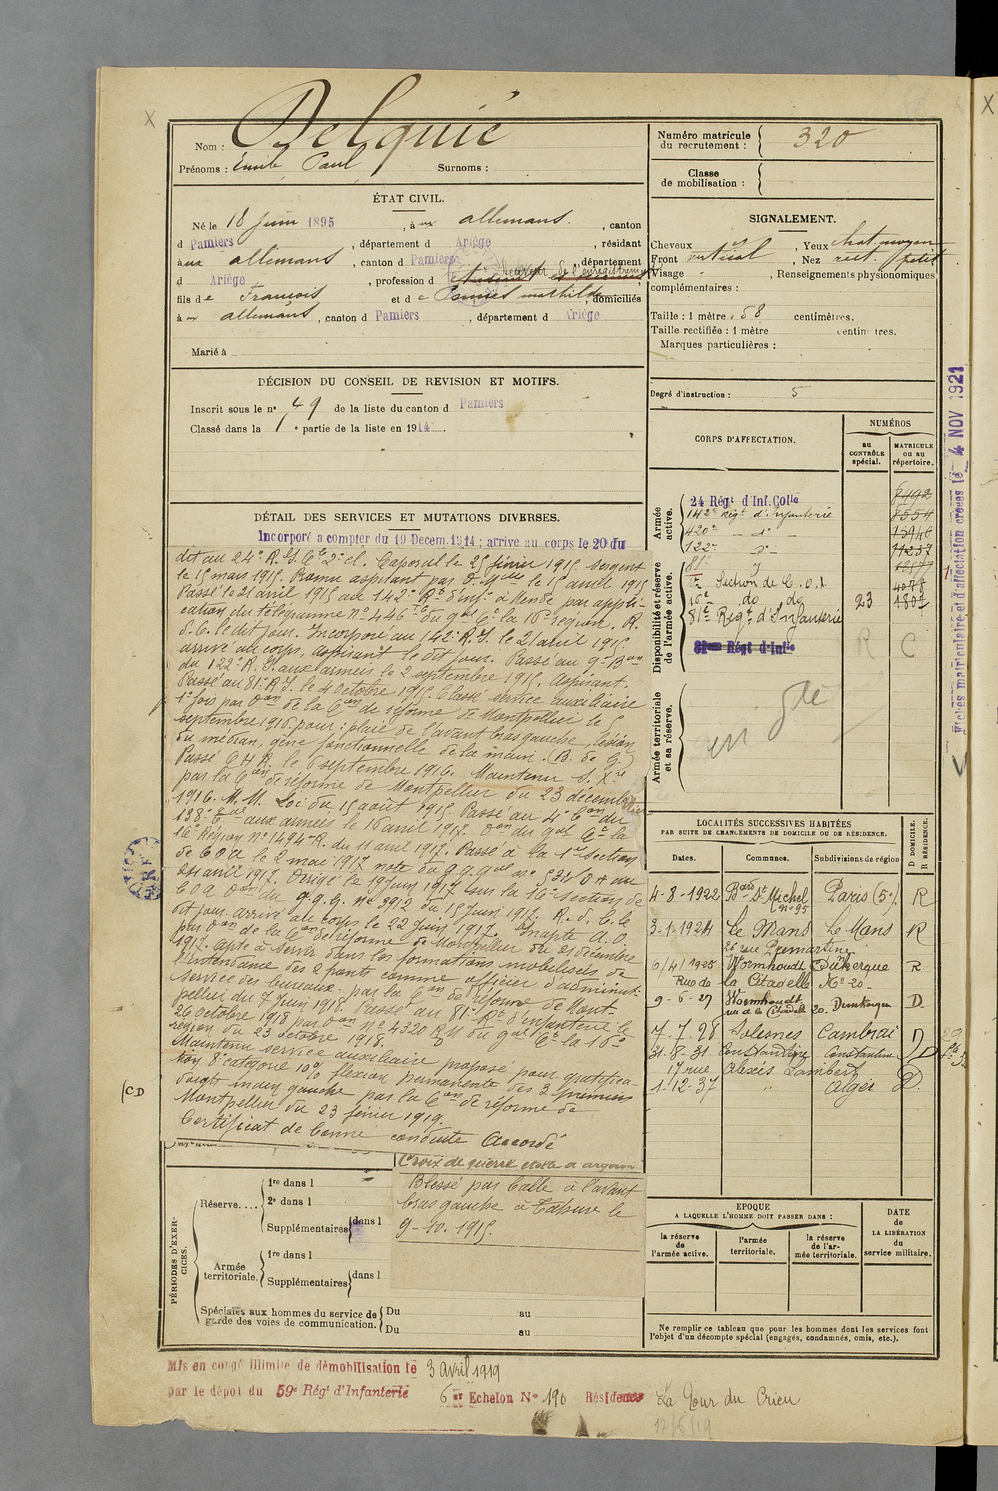 Delquié
Nom :
Prénoms : Emile Paul Surnoms :
ÉTAT CIVIL.
Né le 18 juin 1895, à allemans, canton
d Pamiers, département d Ariège, résidant
à aux allemans, canton d Pamiers, département
d Ariège, profession d Receveur de l'enregistrement
fils de François et de mathilde, domiciliés
à allemans, canton d Pamiers, département d Ariège
Marié à
DÉCISION DU CONSEIL DE REVISION ET MOTIFS.
Inscrit sous le n° 49 de la liste du canton d Pamiers
Classé dans la 1re partie de la liste en 1914.
DÉTAIL DES SERVICES ET MUTATIONS DIVERSES.
Incorporé a compter du 19 Decem. 1914 : arrivé au corps le 20 du
dit au 24e R.I. Cle 2e cl. Caporal le 25 février 1915. Sergent
le 15 mars 1915. Promu aspirant par le 15 avril 1915
Passé le 21 avril 1915 au 142e Rt d'Inf. à Mende par appli-
cation du télégramme n° 446 du Gal Ct la 16e région. R.
d.C. le dit jour. Incorporé au 142e R.I. le 21 avril 1915.
arrivé au corps, aspirant le dit jour. Passé au 9e Bon
du 122e R.I. aux armées le 2 septembre 1915. Aspirant.
Passé au 81e R.I. le 4 octobre 1915. Classé service auxiliaire
1e fois par don de la Con de réforme de Montpellier le 5
septembre 1916 pour : plaie de l'avant bras gauche, lésion
du médian, gêne fonctionnelle de la main. (B. de G.)
Passé C.H.R. le 6 septembre 1916. Maintenu S. Xre
par la Con de réforme de Montpellier du 23 décembre
1916. M.M. Loi du 15 août 1915. Passé au 4e Con du
138e aux armées le 16 avril 1917. Don du Gal Ct la
16e Région n° 1494 R. du 11 avril 1917. Passé à la 1re section
de COA le 2 mai 1917 note du G.Q.G. n° 531/DA du
avril 1917. Dirigé le 19 juin 1917 sur la 16e section de
COA don du G.Q.G. n° 3912 du 15 juin 1917. R.d.C. le
dit jour. arrivé au corps le 22 juin 1917. Inapte A.O.
par don de la Con de réforme de Montpellier du 21 décembre
1917. apte à servir dans les formations mobilisées de
l'intendance des 2 ponts comme officier d'administ-
service des bureaux. par la Con de réforme de Mont-
pellier du 7 juin 1918. Passé au 81e Rt d'infanterie le
26 octobre 1918 par don n° 4320 RM du Gal Ct la 16e
région du 23 octobre 1918.
Maintenu service auxiliaire proposé pour gratifica-
tion 8e catégorie 10% flexion permanente des 3 premiers
doigts main gauche par la Con de réforme de
Montpellier du 23 février 1919.
Certificat de bonne conduite Accordé
Croix de guerre étoile d'argent
Blessé par balle à l'avant
bras gauche à Tahure le
9-10-1915.
(CD
PÉRIODES D'EXERCICES.
Réserve....
1re dans l
2e dans l
Supplémentaires dans l
Armée territoriale.
1re dans l
Supplémentaires dans l
Spéciales aux hommes du service de garde des voies de communication.
Du au
Du au
Mis en congé illimité de démobilisation le 3 avril 1919
par le dépôt du 59e Régt d'Infanterie 6er Echelon N° 190 Résidence La Tour du Crieu
17/5/19
Numéro matricule du recrutement : 320
Classe de mobilisation :
SIGNALEMENT.
Cheveux, Yeux chat. moyen
Front vertical, Nez rect. petit
Visage, Renseignements physionomiques
complémentaires :
Taille : 1 mètre, 58 centimètres.
Taille rectifiée : 1 mètre centimètres.
Marques particulières :
Degré d'instruction : 5
CORPS D'AFFECTATION.
NUMÉROS
au CONTRÔLE spécial.
MATRICULE ou au répertoire.
Armée active.
24 Régt d'Inf. Colle 8492
142e Régt d'Infanterie 8554
420e - d° - 13940
122e - d° - 11237
Disponibilité et réserve de l'armée active.
81e
1re Section de C.O.A 4078
16e do do 23
81e Régt d'Infanterie
81eme Régt d'Infie R C
Armée territoriale et sa réserve.
Fiches matriculaire et d'affectation créées le 4 NOV 1921
LOCALITÉS SUCCESSIVES HABITÉES
PAR SUITE DE CHANGEMENTS DE DOMICILE OU DE RÉSIDENCE.
Dates. Communes. Subdivisions de région
D DOMICILE.
R RÉSIDENCE.
4-8-1922 Bard St Michel n° 95 Paris (5e) R
3-1-1924 Le Mans Le Mans R
26 rue Premartine
6/4/1925 Wormhoudt Dunkerque R
Rue de la Citadelle N° 20
9-6-27 Wormhoudt Dunkerque D
rue de la Citadelle 20.
7.7.28 Solesmes Cambrai D
31.8.31. Constantine Constantine D
17 rue Alexis Lambert
1.12-37 " Alger D.
EPOQUE
A LAQUELLE L'HOMME DOIT PASSER DANS :
la réserve de l'armée active.
l'armée territoriale.
la réserve de l'armée territoriale.
DATE de LA LIBÉRATION du service militaire.
Ne remplir ce tableau que pour les hommes dont les services font
l'objet d'un décompte spécial (engagés, condamnés, omis, etc.).